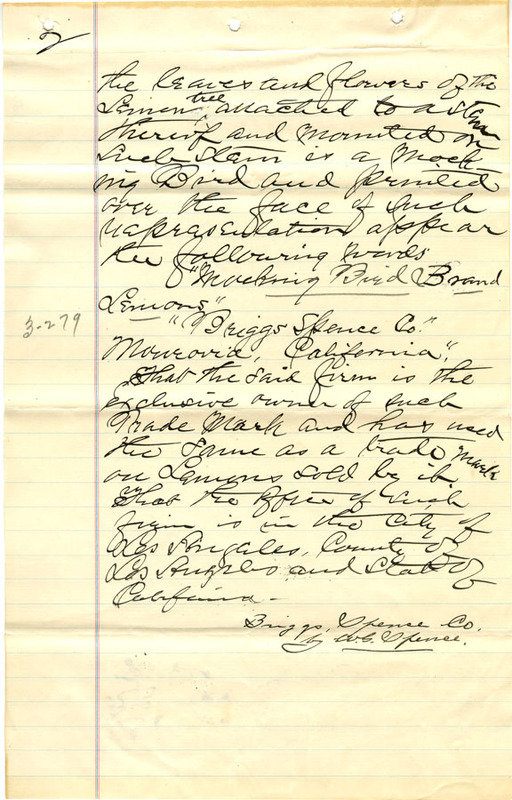 2
the leaves and flowers of the
Lemon tree, attached to a stem
thereof and mounted on
such stem is a Mock
ing Bird and printed
over the face of such
representation appear
the following words
"Mocking Bird Brand
Lemons"
"Briggs Spence Co."
Monrovia, California",
That the said firm is the
exclusive owner of such
Trade Mark and has used
the same as a trade mark
on Lemons sold by it
That the office of such
firm is in the City of
Los Angeles, County of
Los Angeles and State of
California -
Briggs, Spence Co.
by W.C. Spence.
3-279